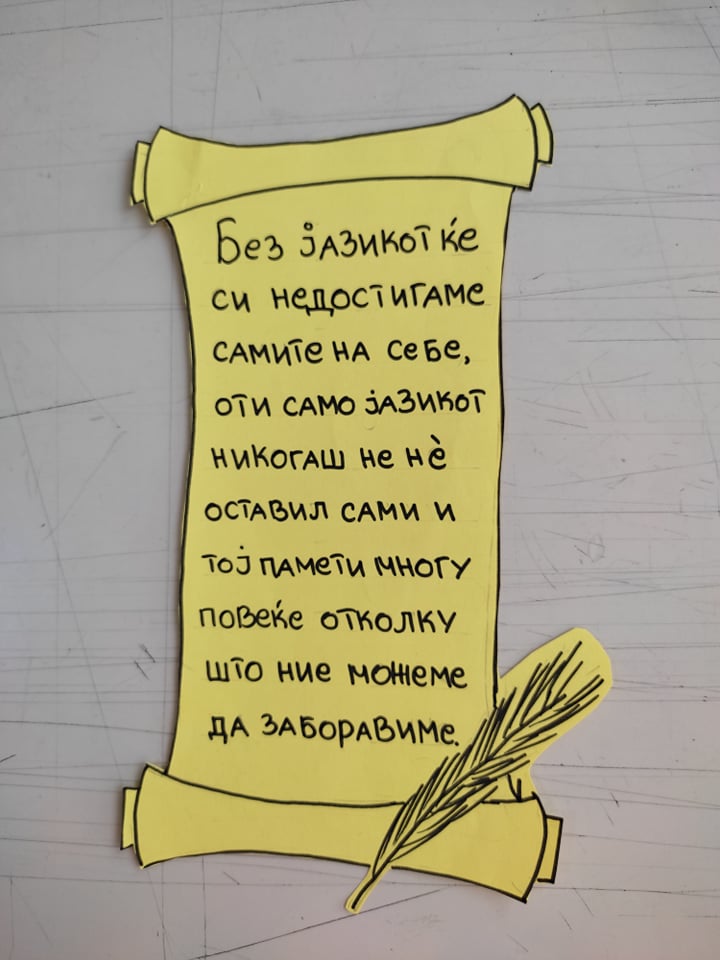 Без јазикот ќе
си недостигаме
самите на себе,
оти само јазикот
никогаш не нѐ
оставил сами и
тој памети многу
повеќе отколку
што ние можеме
да заборавиме.